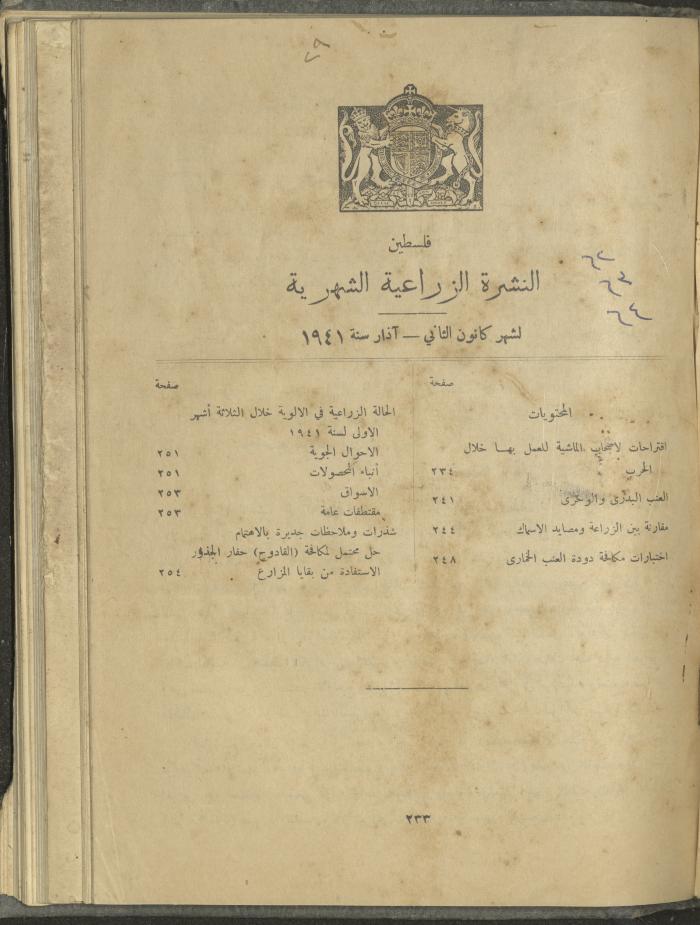 ٢٩
فلسطين
النشرة الزراعية الشهرية
٦٢
٦٣
٦٤
لشهر كانون الثاني — آذار سنة ١٩٤١
صفحة
المحتويات
اقتراحات لاصحاب الماشية للعمل بها خلال
الحرب ٢٣٤
العنب البدرى والوخرى ٢٤١
مقارنة بين الزراعة ومصايد الاسماك ٢٤٤
اختبارات مكافحة دودة العنب الخمارى ٢٤٨
صفحة
الحالة الزراعية في الالوية خلال الثلاثة أشهر
الاولى لسنة ١٩٤١
الاحوال الجوية ٢٥١
أنباء المحصولات ٢٥١
الاسواق ٢٥٣
مقتطفات عامة ٢٥٣
شذرات وملاحظات جديرة بالاهتمام
حل محتمل لمكافحة (القادوح) حفار الجذور
الاستفادة من بقايا المزارع ٢٥٤
٢٣٣